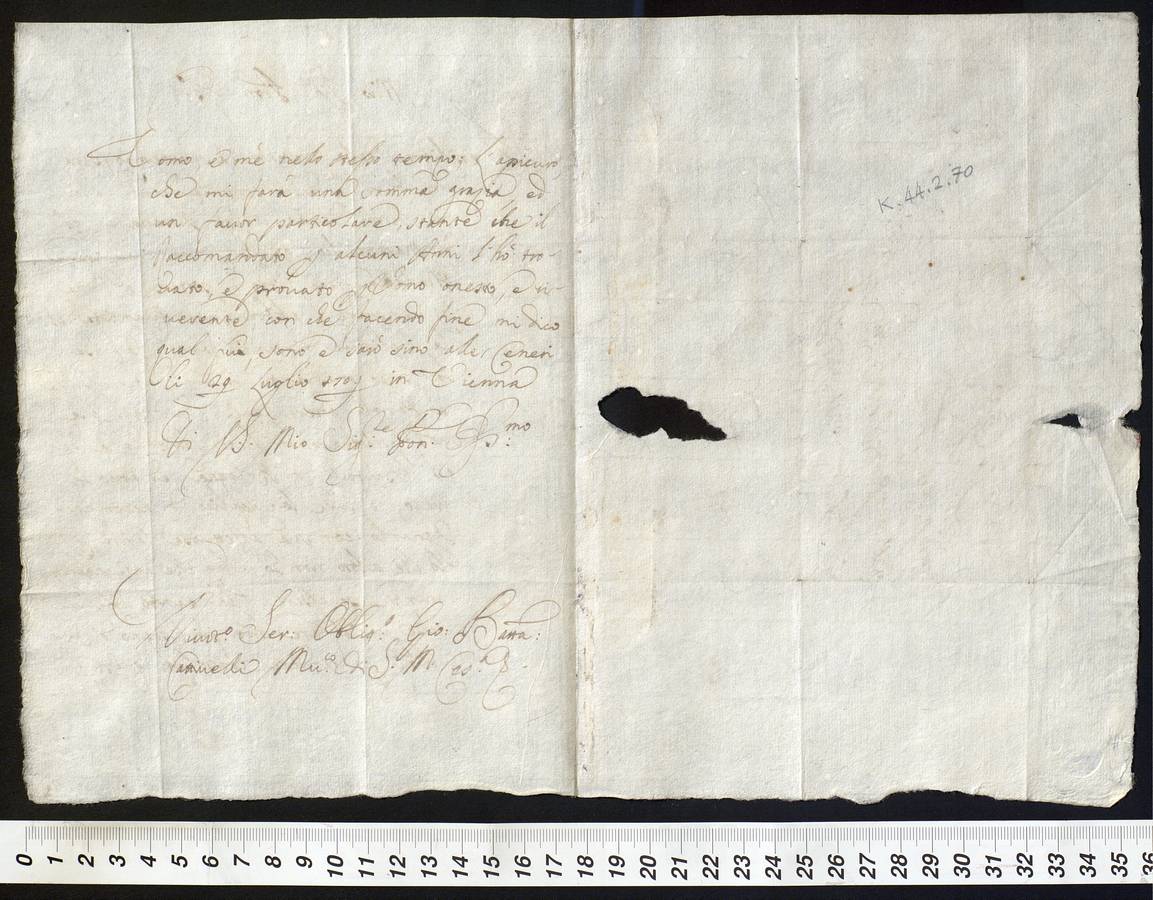 omo è mè nello stesso tempo: L'assicuro,
che mi farà una somma grazia ed
un favor particolare, stante che il
Raccomandato p alcuni Anni l'hò tro-
uato, e prouato p Uomo onesto, e ri-
uerente con che facendo fine mi dico
qual fui, sono e sarò sino alle Ceneri
li 29 Luglio 1709 in Vienna
Di VS. Mio Sig.re Pron.
Diuot.o Ser. Oblig.o Gio: Batta:
Mu.co di S. M. Ces.a
K.44.2.70
0 1 2 3 4 5 6 7 8 9 10 11 12 13 14 15 16 17 18 19 20 21 22 23 24 25 26 27 28 29 30 31 32 33 34 35 36